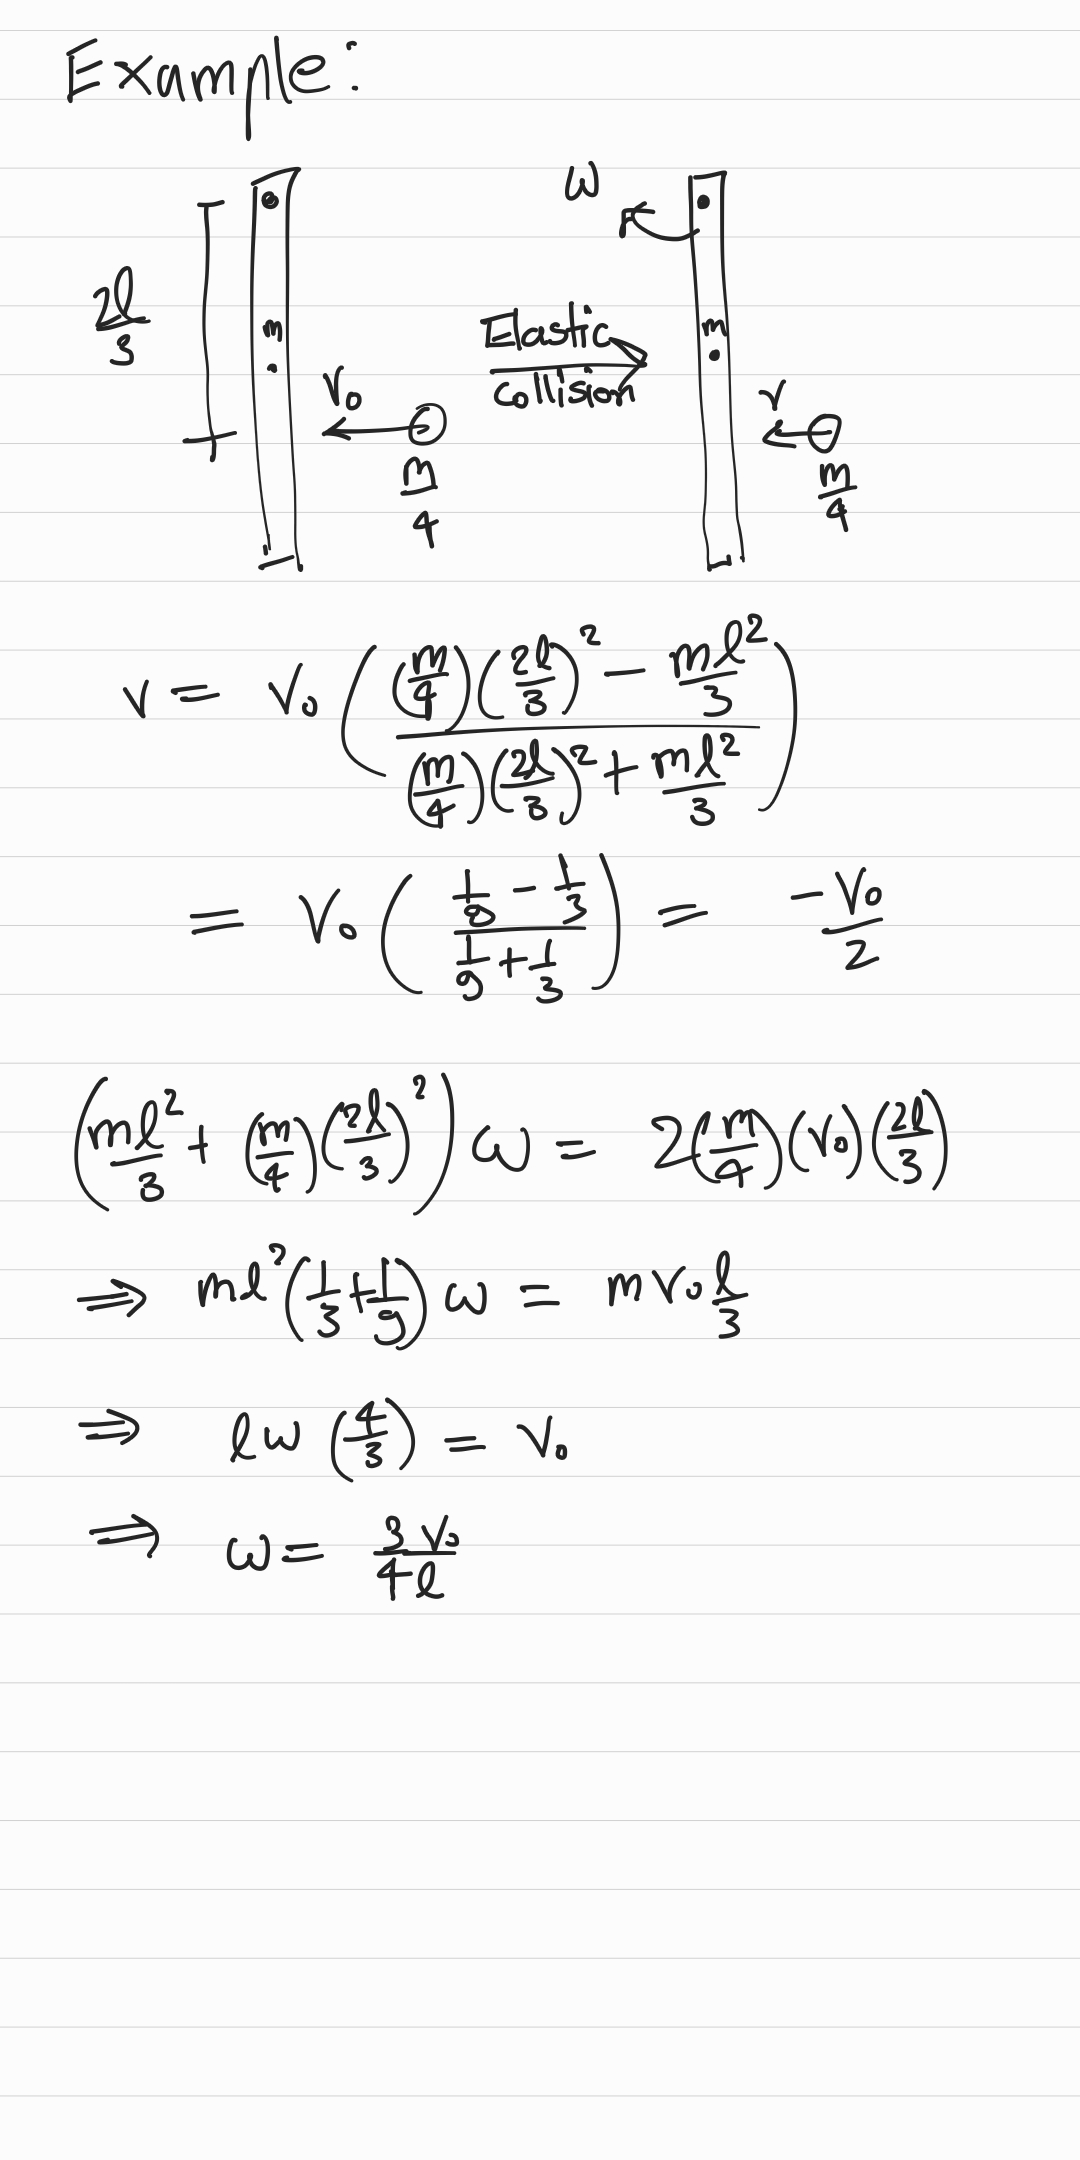 Example:
ω
2l/3
m
m
Elastic
collision
v₀
v
m/4
m/4
v = v₀ ( ( (m/4)(2l/3)² − ml²/3 ) / ( (m/4)(2l/3)² + ml²/3 ) )
= v₀ ( (1/9 − 1/3) / (1/9 + 1/3) ) = −v₀/2
( ml²/3 + (m/4)(2l/3)² ) ω = 2(m/4)(v₀)(2l/3)
⇒ ml² (1/3 + 1/9) ω = m v₀ l/3
⇒ lω (4/3) = v₀
⇒ ω = 3v₀/4l